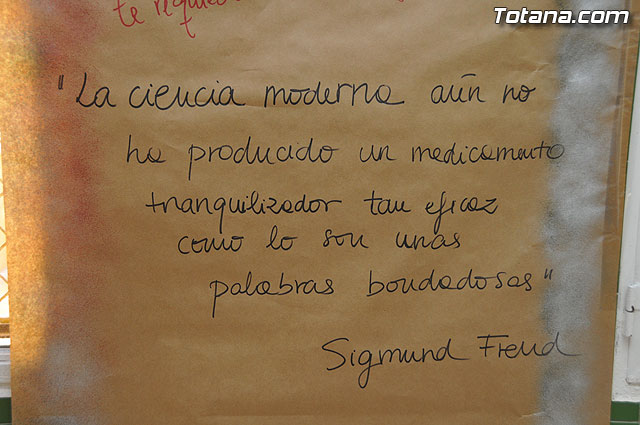 Totana.com
te
"La ciencia moderna aún no
ha producido un medicamento
tranquilizador tan eficaz
como lo son unas
palabras bondadosas"
Sigmund Freud